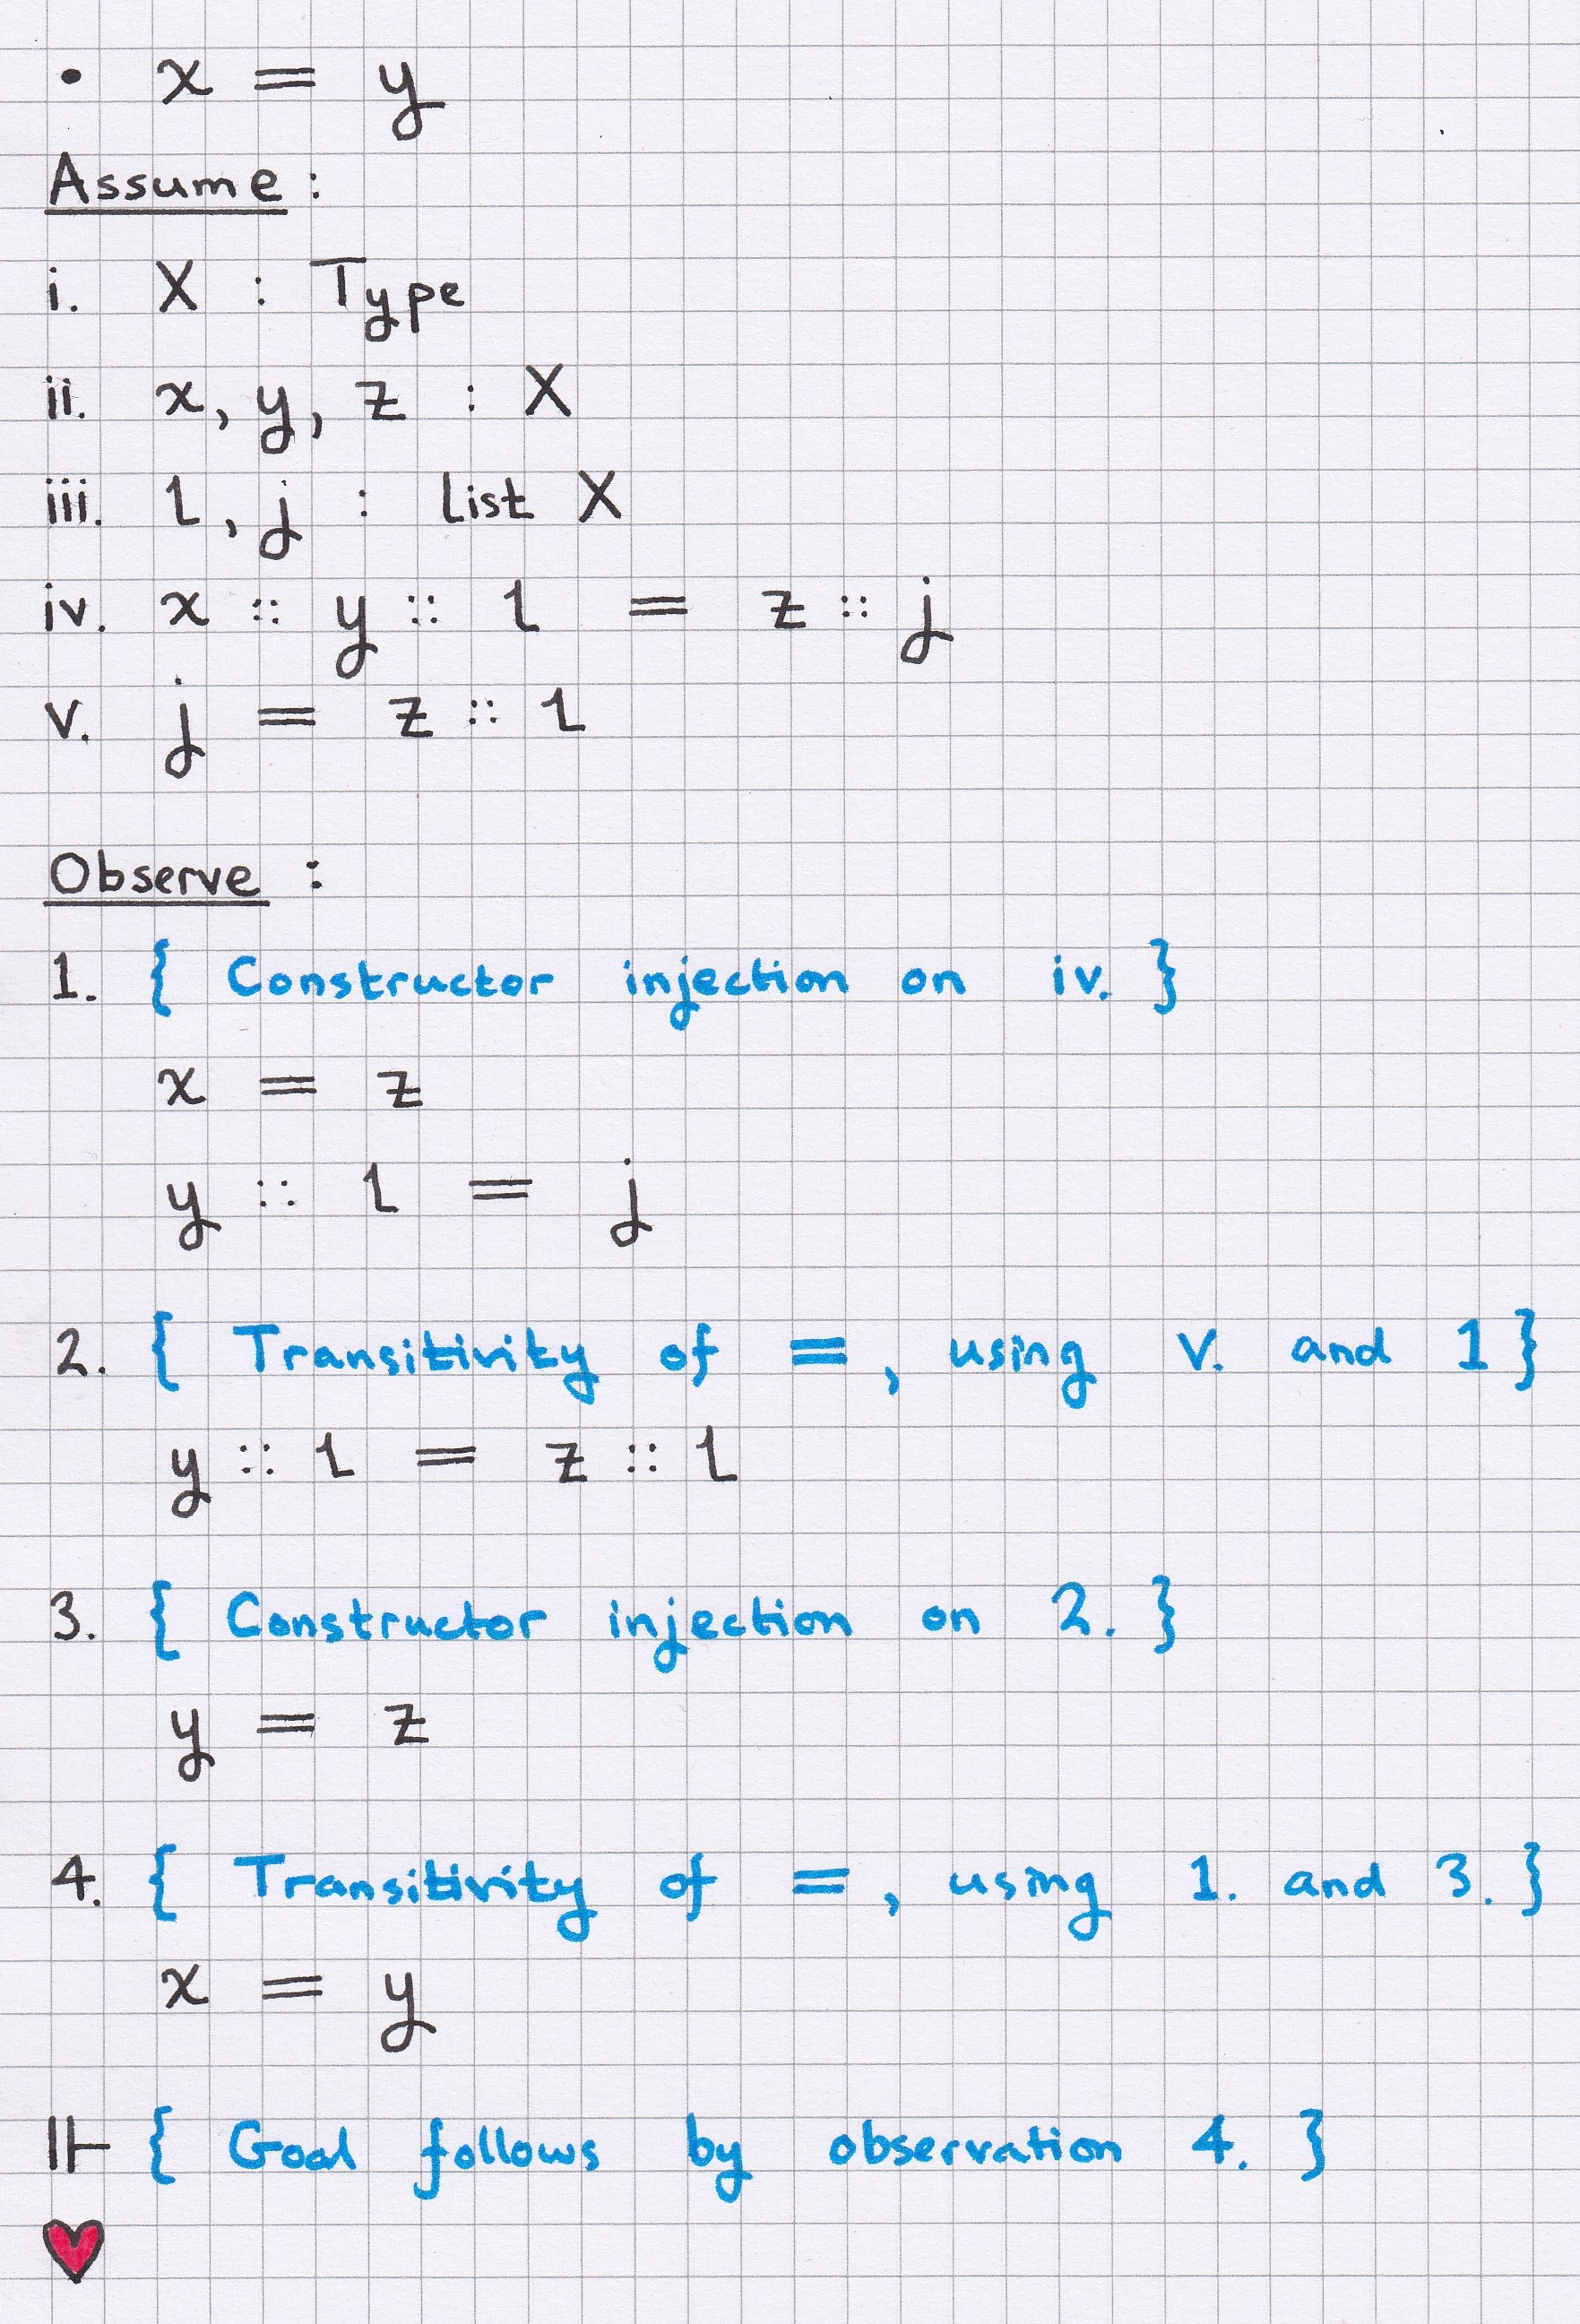 • x = y
Assume :
i. X : Type
ii. x, y, z : X
iii. l, j : list X
iv. x :: y :: l = z :: j
v. j = z :: l
Observe :
1. { Constructor injection on iv. }
x = z
y :: l = j
2. { Transitivity of =, using v. and 1 }
y :: l = z :: l
3. { Constructor injection on 2. }
y = z
4. { Transitivity of =, using 1. and 3. }
x = y
⊩ { Goal follows by observation 4. }